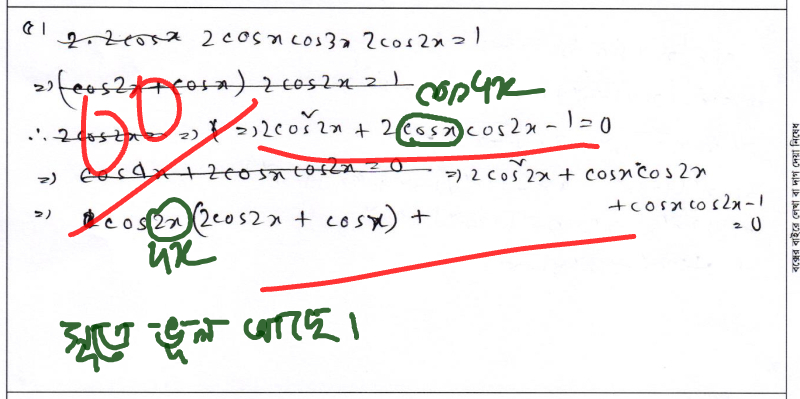 ৫। 2.2cosx 2cosx cos3x 2cos2x=1
=> (cos2x + cosx) 2cos2x = 1
cos4x
∴ 2cos2x= => => 2cos²2x + 2cosx cos2x-1=0
=> cos4x + 2cosx cos2x=0 => 2cos²2x + cosx cos2x
+cosx cos2x-1
=0
=> cos2x (2cos2x + cosx) +
4x
সূত্রে ভুল আছে।
বক্সের বাইরে লেখা বা দাগ দেয়া নিষেধ